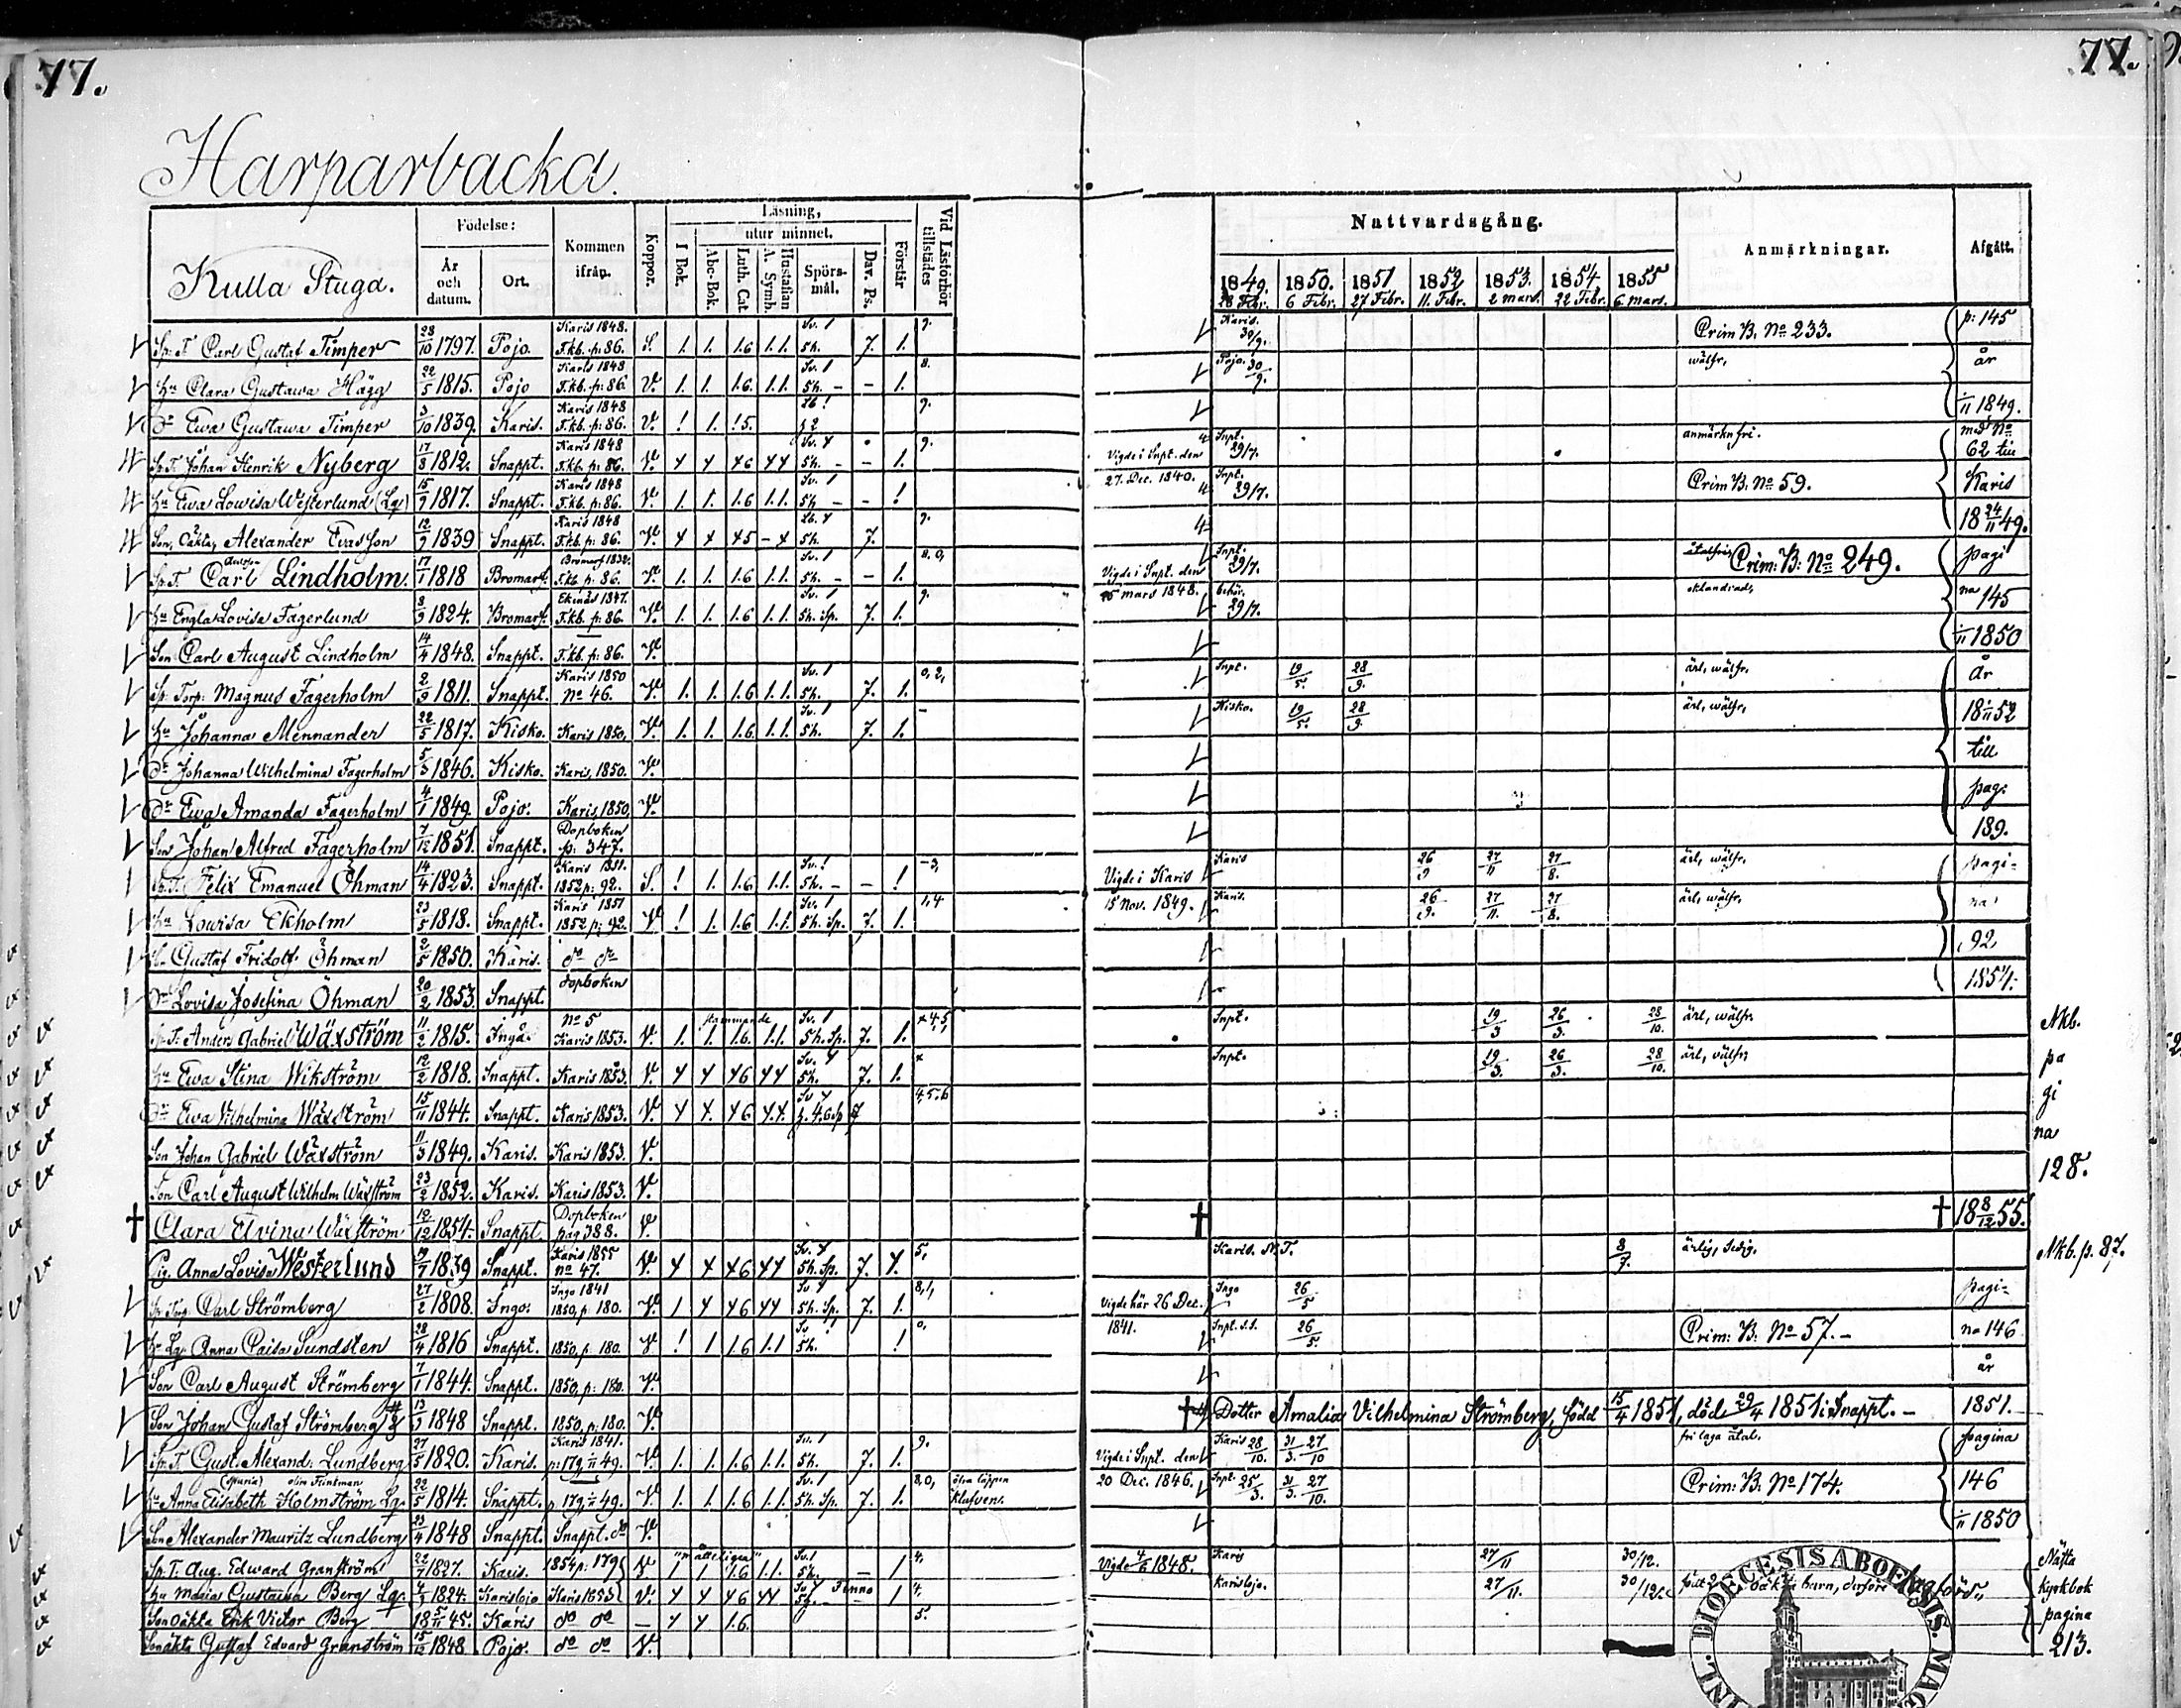 77. 77.
Harparbacka.
Kulla Stuga. Födelse: År och datum. Ort. Kommen ifrån. Koppor. Läsning, I Bok. utur minnet. Abc-Bok. Luth. Cat Hustaflan A. Symb. Spörsmål. Dav. Ps. Förstår Vid Läsförhör tillstädes Nattvardsgång. 1849. 28 Febr. 1850. 6 Febr. 1851 27 Febr. 1852 11. Febr. 1853. 2 mars. 1854. 22 Febr. 1855 6 mars. Anmärkningar. Afgått.
Sp. T. Carl Gustaf Timper 28/10 1797. Pojo. Karis 1848. F.kb. p: 86. S. 1. 1. 1.6 1.1. Sv. 1 5h. 7. 1. 9. Karis. 30/9. Crim B. No 233. p: 145
Hu Clara Gustawa Hägg 22/5 1815. Pojo Karis 1848 F.kb. p: 86 V. 1. 1. 1.6. 1.1. Sv. 1 5h. - - 1. 8. Pojo. 30/9. wälfr, år
Dr Ewa Gustawa Timper 3/10 1839. Karis. Karis 1848 F.kb. p: 86. V. ! 1. 1.5. 9. /11 1849.
Sp. T. Johan Henrik Nyberg 17/8 1812. Snappt. Karis 1848 F.kb. p: 86. V. 5h. - - 1. 9. Vigde i Snpt. den Snpt. 29/7. anmärkn fri. med No 62 till
Hu Ewa Lowisa Westerlund (Lq) 15/9 1817. Snappt. Karis 1848 F.kb. p: 86. V. 1. 1. 1.6 1.1. Sv. 1 5h - - ! 27. Dec. 1840. Snpt. 29/7. Crim B. No 59. Karis
Son, oäkta, Alexander Evasson 12/9 1839 Snappt. Karis 1848 F.kb. p: 86. V. 5h. 7. 9. 18 24/11 49.
Sp. T. Carl Lindholm. 17/1 1818 Bromarf. Bromarf 1832. F.kb p: 86. V. 1. 1. 1.6 1.1. Sv. 1 5h. - - 1. 8. 0, Vigde i Snpt. den Snpt. 29/7. Crim: B: No 249. pagi
Hu Engla Lovisa Fagerlund 8/9 1824. Bromarf. Ekenäs 1847. F.kb. p: 86. V. 1. 1. 1.6 1.1. Sv. 1 5h. Sp. 7. 1. 9. 15 mars 1848. 29/7. oklandrad, na 145
Son Carl August Lindholm 14/4 1848. Snappt. F.kb. p: 86 V. /11 1850
Sp. Torp. Magnus Fagerholm 2/9 1811. Snappt. Karis 1850 No 46. V. 1. 1. 1.6 1.1. Sv. 1 5h. 7. 1. 0, 2, Snpt. 19/5. 28/9. ärl, wälfr, år
Hu Johanna Mennander 22/5 1817. Kisko. Karis 1850. V. 1. 1. 1.6. 1.1. Sv. 1 5h. 7. 1. - Kisko. 19/5. 28/9 ärl, wälfr, 18 /11 52
Dr Johanna Wilhelmina Fagerholm 5/3 1846. Kisko. Karis, 1850. V. till
Dr Ewa Amanda Fagerholm 4/1 1849. Pojo. Karis, 1850 V. pag.
Son Johan Alfred Fagerholm 7/12 1851. Snappt. Dopboken p: 347. 189.
Sp. T. Felix Emanuel Öhman 14/4 1823. Snappt. Karis 1851. 1852 p: 92. S. ! 1. 1.6 1.1. Sv. ! 5h. - - ! -3, Vigde i Karis Karis 26/9 27/11 27/8. ärl, wälfr, pagi-
Hu Lowisa Ekholm 23/5 1818. Snappt. Karis 1851 1852 p: 92. V ! 1. 1.6 1.1. Sv. 1 5h. Sp. 7. 1. 1, 4 15 Nov. 1849. Karis. 26/9. 27/11. 27/8. ärl, wälfr, na
Gustaf Fridolf Öhman 2/5 1850. Karis. do do 92
Dr Lovisa Josefina Öhman 20/2 1853. Snappt. dopboken 1854.
Sp. T. Anders Gabriel Wäxström 11/2 1815. Ingå. No 5 Karis 1853. V. stammande 1. 1. 1.6. 1.1. Sv. 1 5h. Sp. 7. 1. Snpt. 19/3 26/3. 28/10. ärl, wälfr. Nkb.
Hu Ewa Stina Wikström 12/2 1818. Snappt. Karis 1853. V. 5h. 7. 1. Snpt. 19/3. 26/3. 28/10. ärl, wälfr, pa
Dr Ewa Vilhelmina Wäxström 15/11 1844. Snappt. Karis 1853. V. 4, 5. 6 gi
Son Johan Gabriel Wäxström 11/3 1849. Karis. Karis 1853. V. na
Son Carl August Wilhelm Wäxström 23/2 1852. Karis. Karis 1853. V. 128.
† Clara Elvina Wäxström 12/12 1854. Snappt Dopboken pag 388. V. † † 18 8/12 55.
Pig. Anna Lovisa Westerlund 19/7 1839 Snappt. Karis 1855 no 47. V. 5h. Sp. 7. 5, Karis. N. T. 8/7. ärlig, sedig. Nkb. p. 87.
Sp. Torp. Carl Strömberg 27/2 1808. Ingo. Ingo 1841 1850, p: 180. V. 5h. Sp. 7. 1. 8, 1, Vigde här 26 Dec. Ingo 26/5 pagi-
Hu Lq. Anna Caisa Sundsten 28/4 1816 Snappt. 1850, p: 180. V ! 1 1.6 1.1 Sv ! 5h. ! 0, 1841. Snpt. 26/5. Crim: B: No 57. - na 146
Son Carl August Strömberg 7/1 1844. Snappt. 1850, p: 180. V. år
Son Johan Gustaf Strömberg 13/9 1848 Snappt. 1850, p: 180. V. † Dotter Amalia Vilhelmina Strömberg, född 15/4 1851, död 29/4 1851 i Snappt. - 1851.
Sp. T. Gust. Alexand: Lundberg 27/5 1820. Karis. Karis 1841. p: 179 /11 49. V. 1. 1. 1.6 1.1. Sv. 1 5h. 7. 1. 9. Vigde i Snpt. den Karis 28/10. 31/3. 27/10 pagina
Hu Anna (Maria) Elisabeth Holmström Lq. 22/5 1814. Snappt. p 179 /11 49. V. 1. 1. 1.6 1.1. Sv. 1 5h. Sp. 7. 1. 8, 0, öfra läppen klufven. 20 Dec. 1846. Snpt. 25/3. 31/3. 27/10. Crim: B: No 174. 146
Son Alexander Mauritz Lundberg 23/4 1848 Snappt. Snappt. do V. /11 1850
Sp. T. Aug. Edward Granström 22/7 1827. Karis. 1854 p: 179 V "måtteligen" 1 1 1.6 1.1. Sv. 1 5h. - 1 4, Vigde 4/6 1848. Karis 27/11 30/12. Nästa
Hu Maria Gustawa Berg Lq. 4/9 1824. Karislojo Karis 1853 V. Finno 1 4. Karislojo. 27/11. 30/12. oäkta barn, derföre Kyrkbok
Son oäkta Erik Victor Berg 18 5/11 45. Karis do do - 1.6. 5. pagina
Son äkta Gustaf Edvard Granström 15/12 1848. Pojo. do do V. 213.
DIOECESIS ABOENSIS. MAG